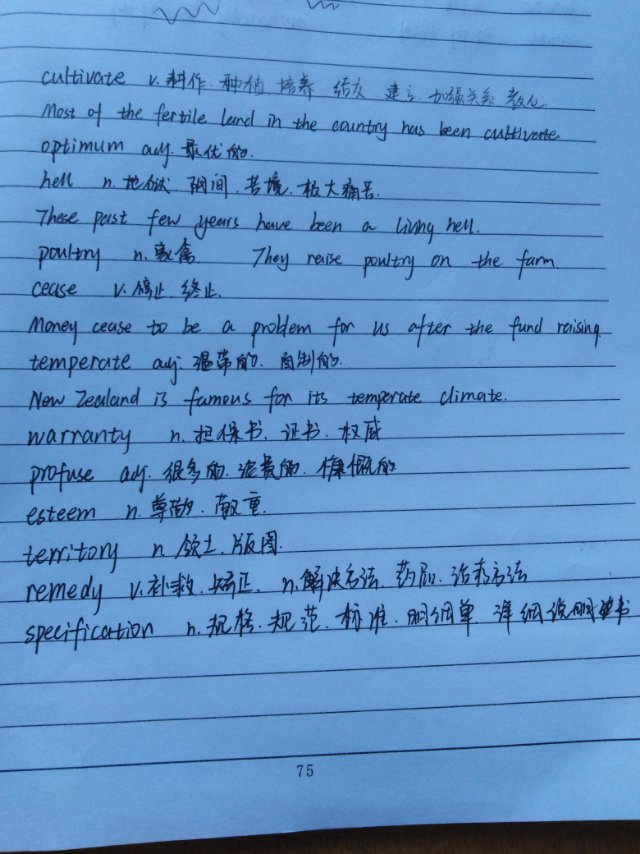 cultivate v. 耕作 种植 培养 结交 建立 加强关系 教化
Most of the fertile land in the country has been cultivate.
optimum adj. 最优的.
hell n. 地狱 阴间. 苦境. 极大痛苦.
These past few years have been a living hell.
poultry n. 家禽. They raise poultry on the farm.
cease v. 停止. 终止.
Money cease to be a problem for us after the fund raising.
temperate adj. 温带的. 自制的.
New Zealand is famous for its temperate climate.
warranty n. 担保书. 证书. 权威
profuse adj. 很多的. 浪费的. 慷慨的
esteem n. 尊敬. 敬重.
territory n. 领土. 版图.
remedy v. 补救. 矫正. n. 解决方法. 药品. 治疗方法
specification n. 规格. 规范. 标准. 明细单. 详细说明书
75